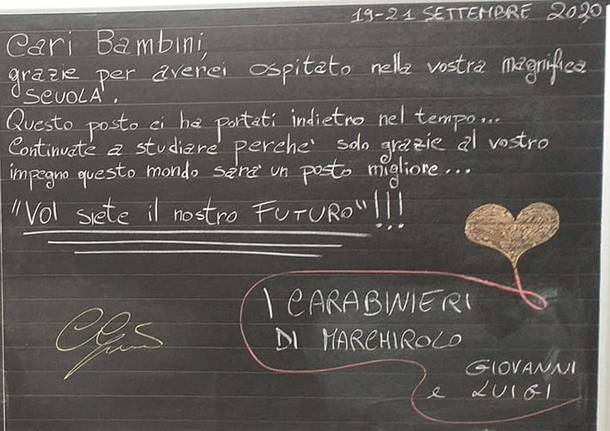 19-21 SETTEMPRE 2020
Cari Bambini,
grazie per averci ospitato nella vostra magnifica
SCUOLA.
Questo posto ci ha portati indietro nel tempo...
Continuate a studiare perche' solo grazie al vostro
impegno questo mondo sara' un posto migliore...
"VOI siete il nostro FUTURO"!!!
I CARABINIERI
DI MARCHIROLO
GIOVANNI
e LUIGI